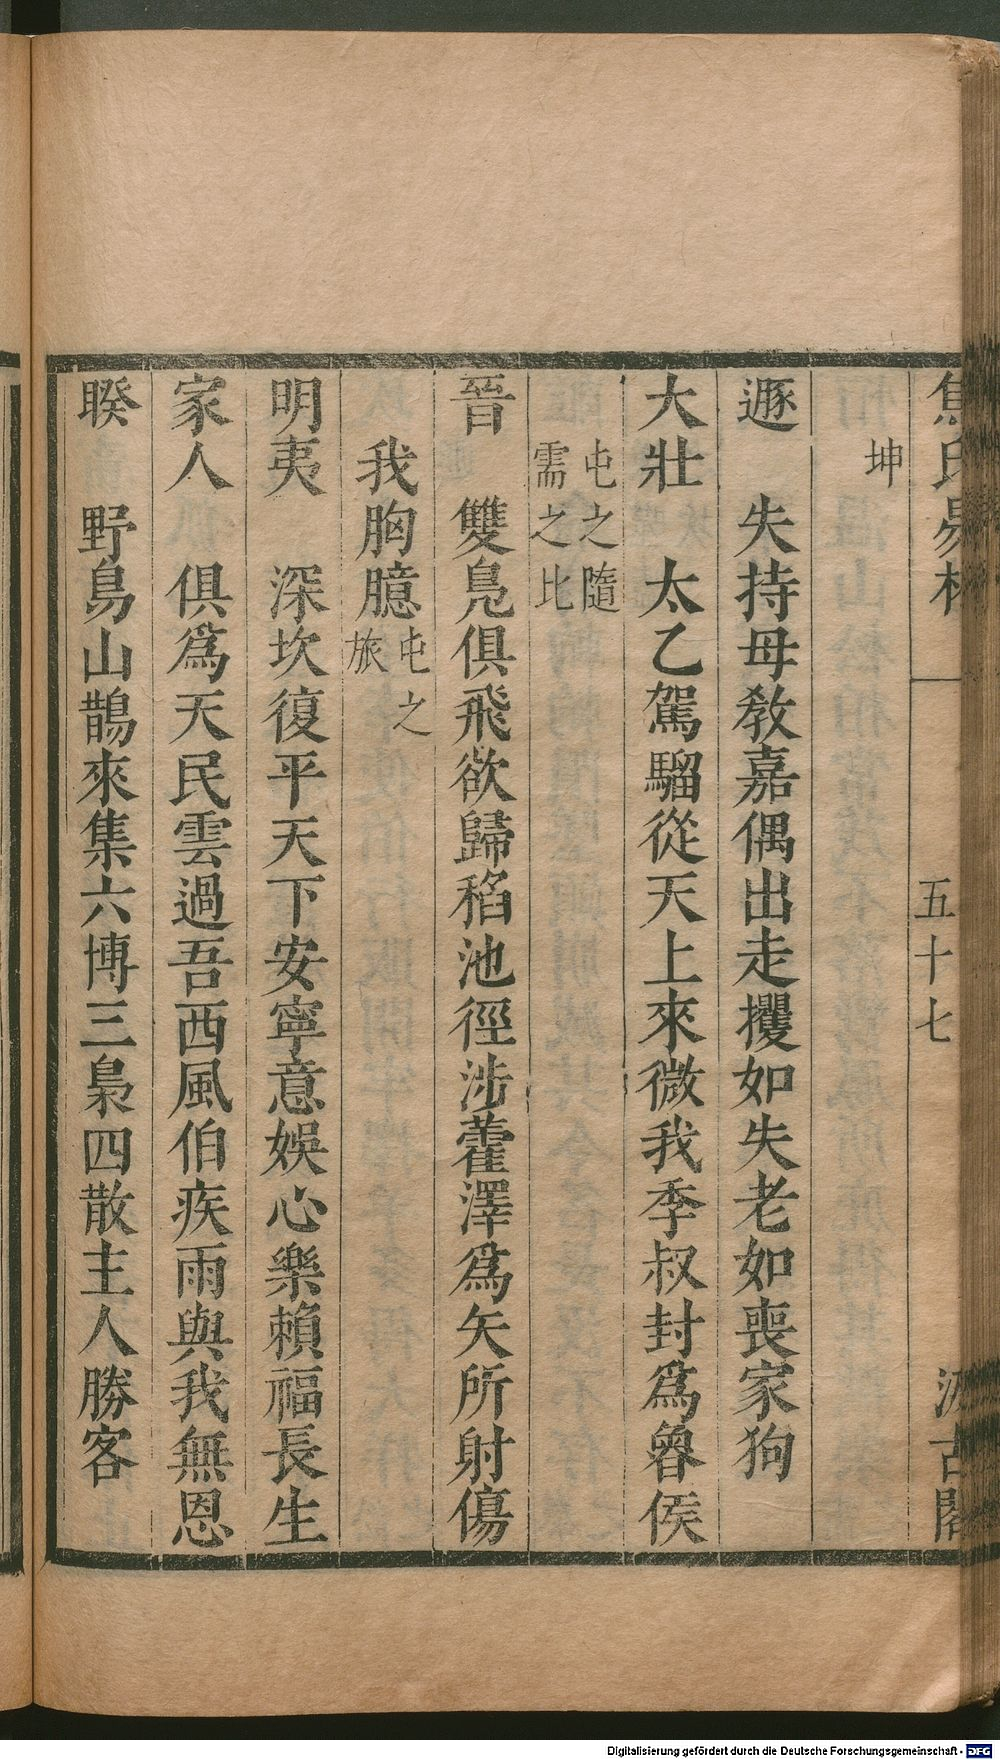 焦氏易林 五十七 汲古閣
坤
遯 失持母教嘉偶出走攫如失老如喪家狗
大壯 太乙駕騮從天上來微我季叔封爲魯侯
屯之隨
需之比
晉 雙鳬俱飛欲歸稻池徑涉藿澤爲矢所射傷
我胸臆屯之
旅
明夷 深坎復平天下安寧意娛心樂賴福長生
家人 俱爲天民雲過吾西風伯疾雨與我無恩
睽 野鳥山鵲來集六博三梟四散主人勝客
Digitalisierung gefördert durch die Deutsche Forschungsgemeinschaft - DFG